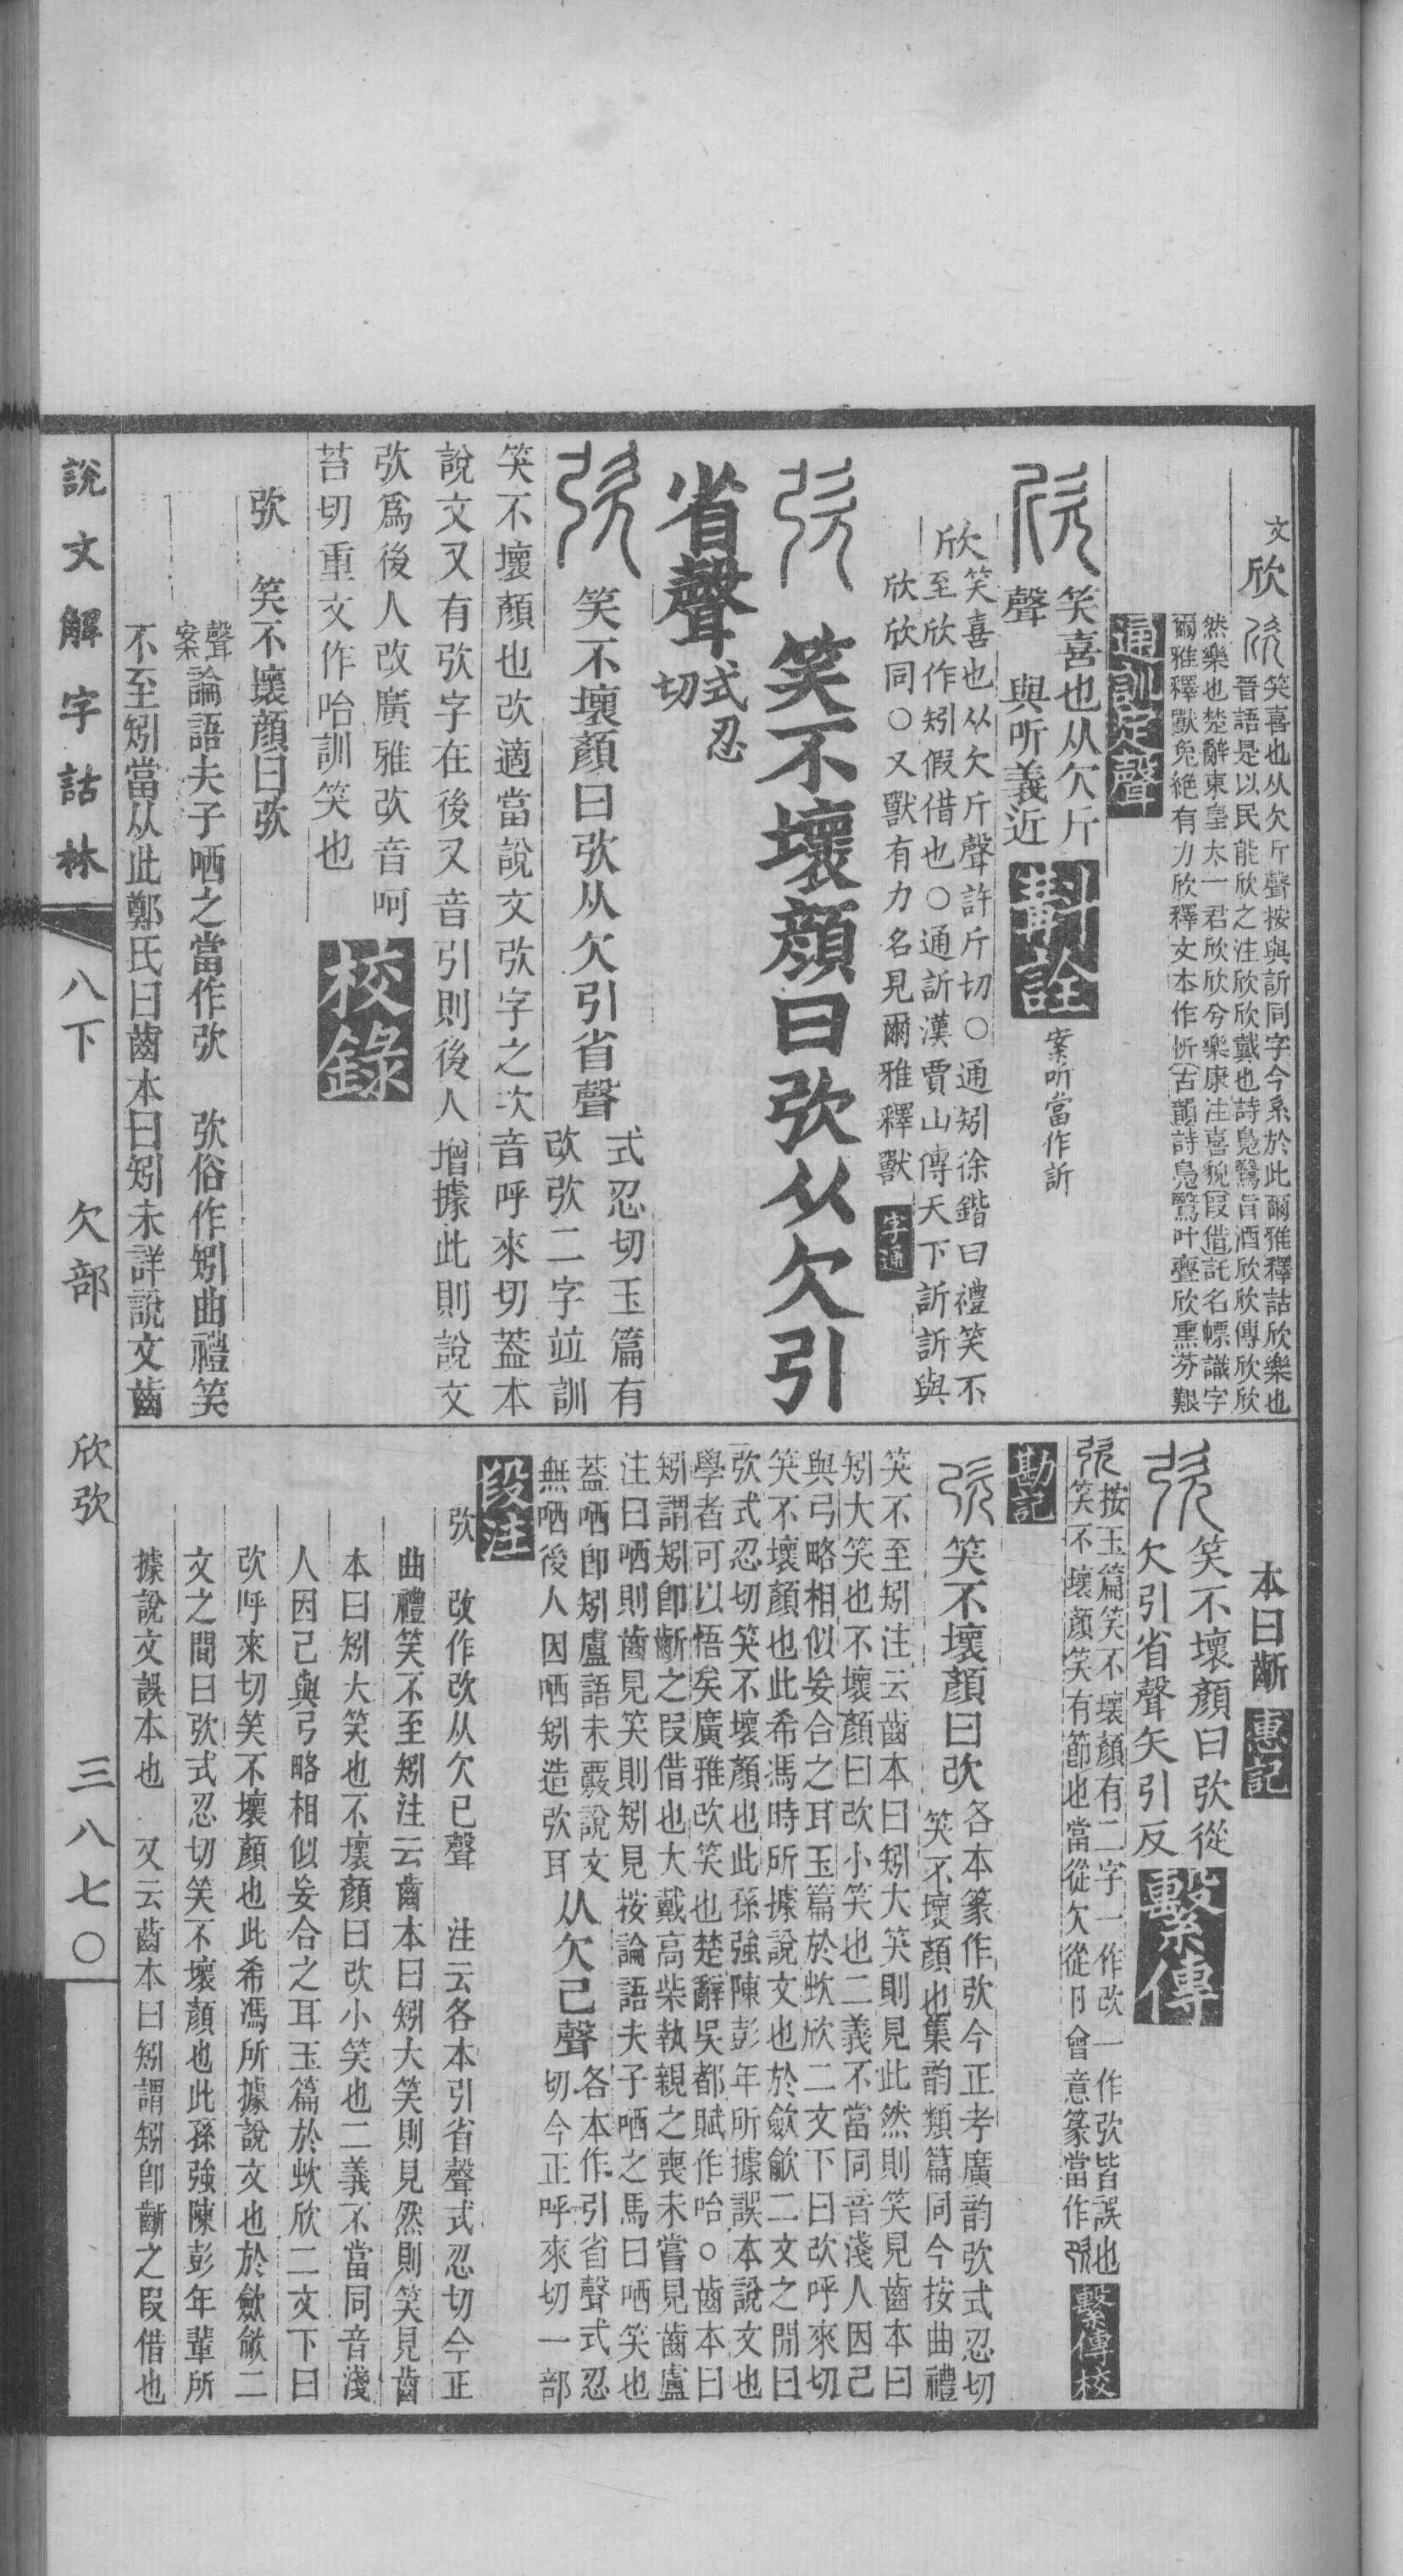 文欣
笑喜也从欠斤聲按與訢同字今系於此爾雅釋詁欣樂也
晉語是以民能欣之注欣欣戴也詩鳧鷖旨酒欣欣傳欣欣
然樂也楚辭東皇太一君欣欣兮樂康注喜貌叚借託名幖識字
爾雅釋獸兔絕有力欣釋文本作㤆古韻詩鳧鷖叶亹欣熏芬艱
通訓定聲
笑喜也从欠斤
聲 與听義近
斠詮
案听當作訢
欣笑喜也从欠斤聲許斤切○通矧徐鍇曰禮笑不
至欣作矧假借也○通訢漢賈山傳天下訢訢與
欣欣同○又獸有力名見爾雅釋獸
字通
笑不壞顏曰弞从欠引
省聲式忍切
笑不壞顏曰弞从欠引省聲
式忍切玉篇有
㰧弞二字竝訓
笑不壞顏也㰧適當說文弞字之次音呼來切葢本
說文又有弞字在後又音引則後人增據此則說文
弞爲後人改廣雅㰧音呵
苔切重文作咍訓笑也
校錄
弞 笑不壞顏曰弞
聲案論語夫子哂之當作弞 弞俗作矧曲禮笑
不至矧當从此鄭氏曰齒本曰矧未詳說文齒
說文解字詁林 八下 欠部 欣弞 三八七〇
本曰齗
惠記
笑不壞顏曰弞從
欠引省聲矢引反
繫傳
按玉篇笑不壞顏有二字一作㰧一作弞皆誤也
笑不壞顏笑有節也當從欠從卪會意篆當作
繫傳校
勘記
笑不壞顏曰㰧
各本篆作弞今正考廣韵弞式忍切
笑不壞顏也集韵類篇同今按曲禮
笑不至矧注云齒本曰矧大笑則見此然則笑見齒本曰
矧大笑也不壞顏曰㰧小笑也二義不當同音淺人因己
與弓略相似妄合之耳玉篇於㰞欣二文下曰㰧呼來切
笑不壞顏也此希馮時所據說文也於歛歈二文之閒曰
弞式忍切笑不壞顏也此孫強陳彭年所據誤本說文也
學者可以悟矣廣雅㰧笑也楚辭吳都賦作咍○齒本曰
矧謂矧卽齗之叚借也大戴高柴執親之喪未嘗見齒盧
注曰哂則齒見笑則矧見按論語夫子哂之馬曰哂笑也
葢哂卽矧盧語未覈說文
無哂後人因哂矧造弞耳
从欠己聲
各本作引省聲式忍
切今正呼來切一部
段注
弞 㰧作㰧从欠已聲 注云各本引省聲式忍切今正
曲禮笑不至矧注云齒本曰矧大笑則見然則笑見齒
本曰矧大笑也不壞顏曰㰧小笑也二義不當同音淺
人因己與弓略相似妄合之耳玉篇於㰞欣二文下曰
㰧呼來切笑不壞顏也此希馮所據說文也於歛歈二
文之間曰弞式忍切笑不壞顏也此孫強陳彭年輩所
據說文誤本也 又云齒本曰矧謂矧卽齗之叚借也